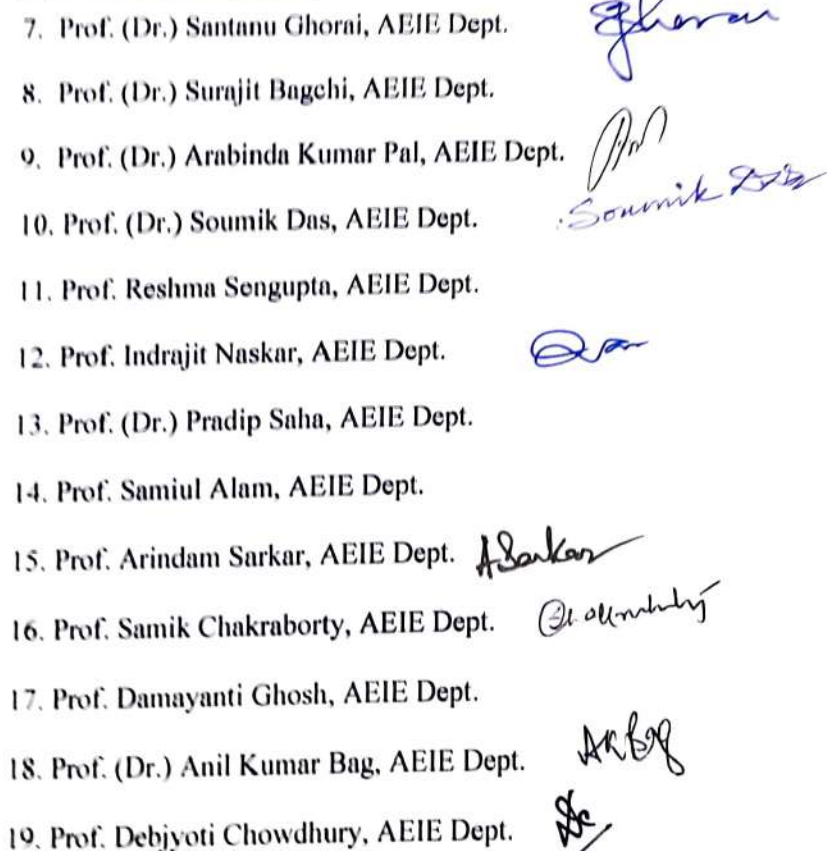 7. Prof. (Dr.) Santanu Ghorai, AEIE Dept.
8. Prof. (Dr.) Surajit Bagchi, AEIE Dept.
9. Prof. (Dr.) Arabinda Kumar Pal, AEIE Dept.
10. Prof. (Dr.) Soumik Das, AEIE Dept. Soumik Das
11. Prof. Reshma Sengupta, AEIE Dept.
12. Prof. Indrajit Naskar, AEIE Dept.
13. Prof. (Dr.) Pradip Saha, AEIE Dept.
14. Prof. Samiul Alam, AEIE Dept.
15. Prof. Arindam Sarkar, AEIE Dept. ASarkar
16. Prof. Samik Chakraborty, AEIE Dept.
17. Prof. Damayanti Ghosh, AEIE Dept.
18. Prof. (Dr.) Anil Kumar Bag, AEIE Dept. AKBag
19. Prof. Debjyoti Chowdhury, AEIE Dept.